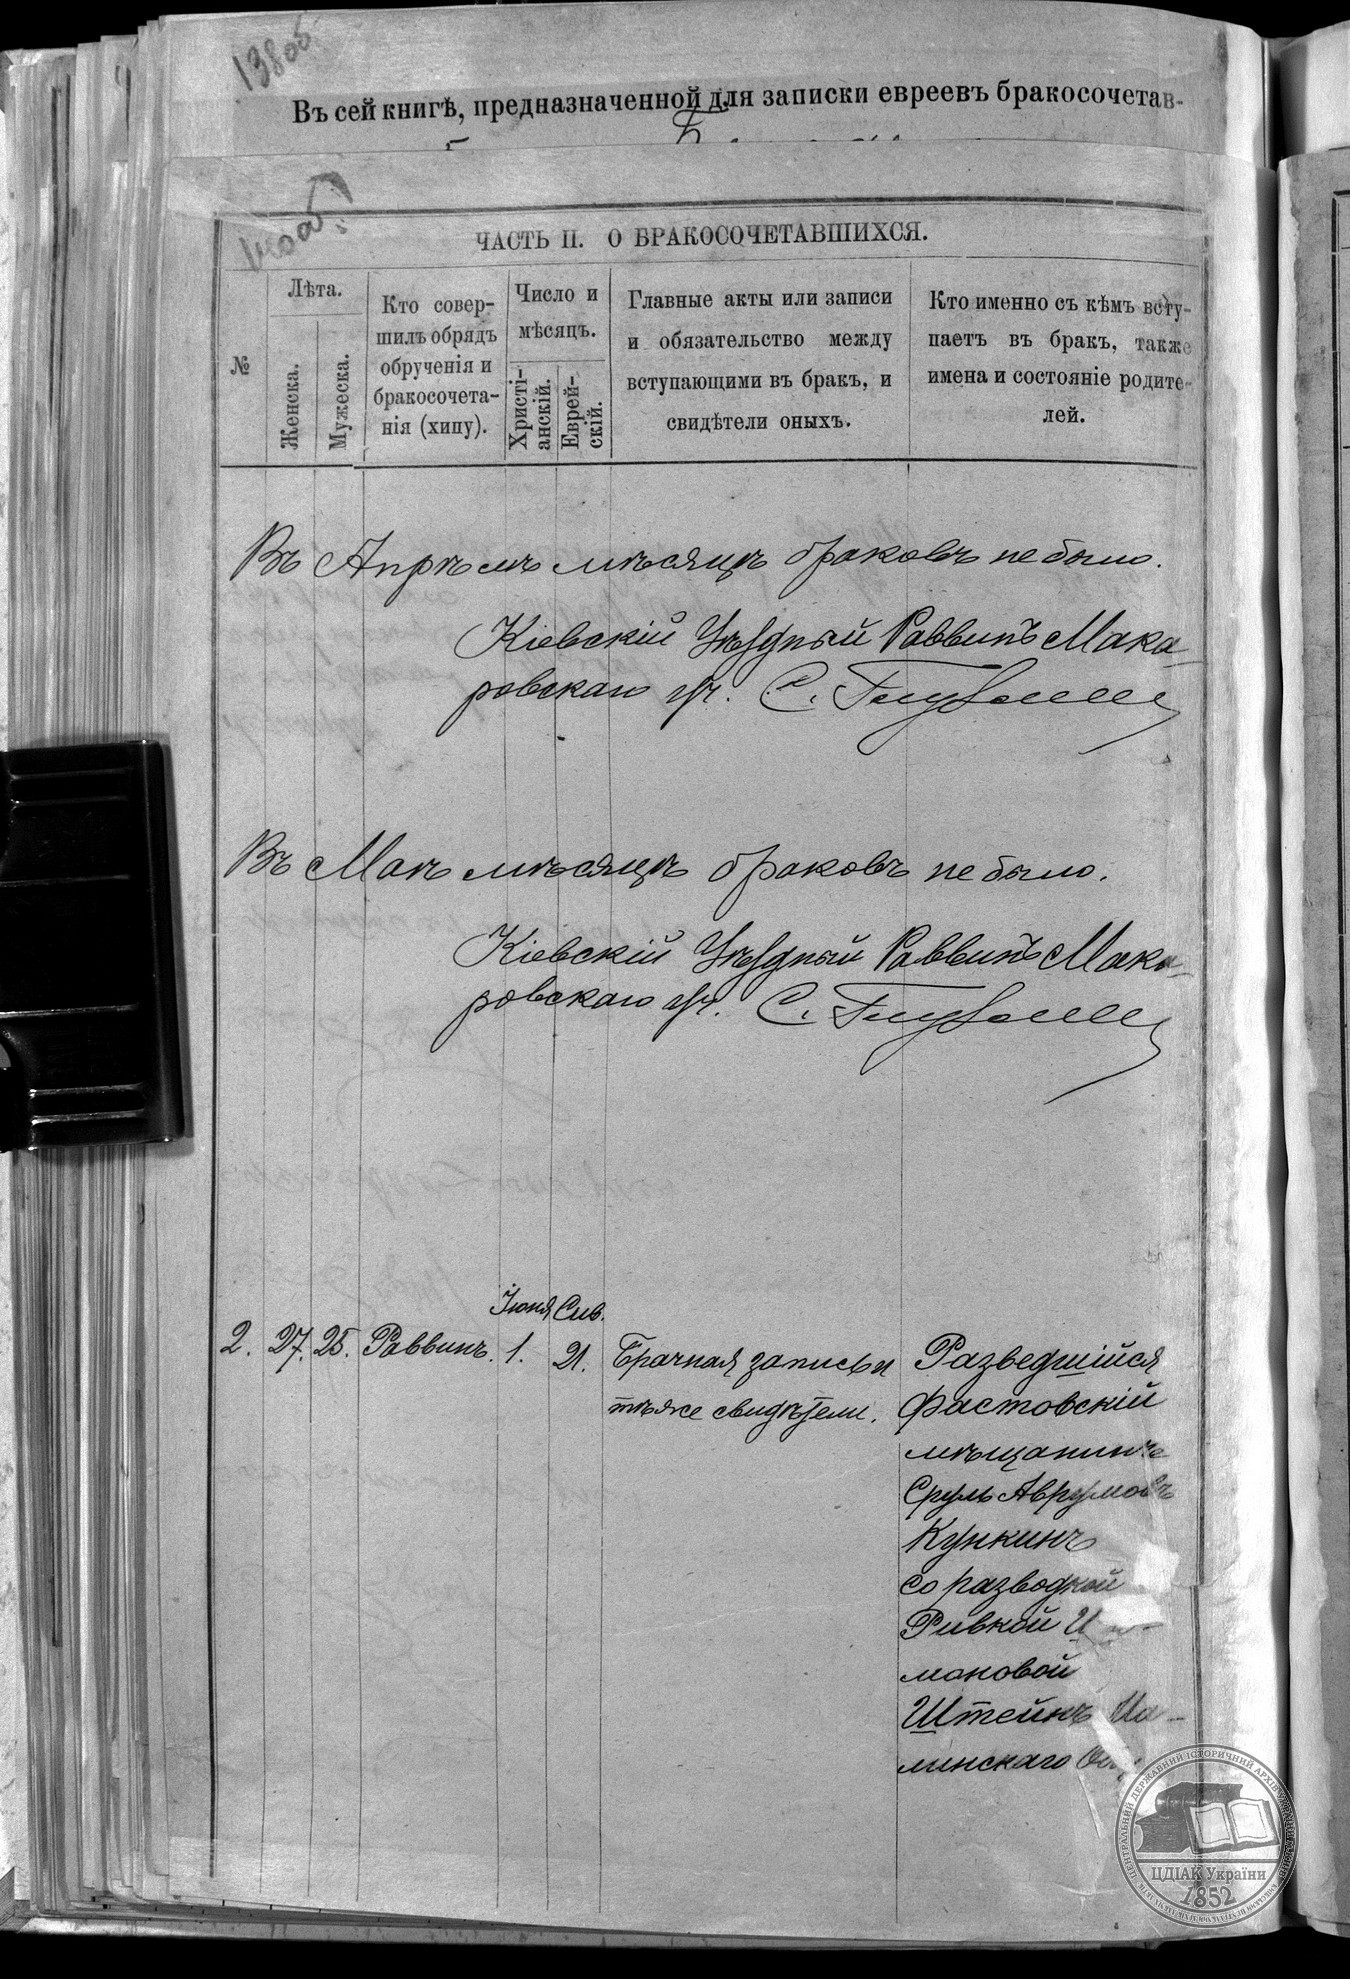 138об
Въ сей книгѣ, предназначенной для записки евреевъ бракосочетав-
ЧАСТЬ II. О БРАКОСОЧЕТАВШИХСЯ.
№
Лѣта.
Женска.
Мужеска.
Кто совер-
шилъ обрядъ
обрученія и
бракосочета-
нія (хипу).
Число и
мѣсяцъ.
Христі-
анскій.
Еврей-
скій.
Главные акты или записи
и обязательство между
вступающими въ бракъ, и
свидѣтели оныхъ.
Кто именно съ кѣмъ всту-
паетъ въ бракъ, также
имена и состояніе родите-
лей.
Въ Апрѣлѣ мѣсяцѣ браковъ не было.
Кіевскій Уѣздный Раввинъ Мака-
ровскаго уч. С.
Въ Маѣ мѣсяцѣ браковъ не было.
Кіевскій Уѣздный Раввинъ Мака-
ровскаго уч. С.
Іюня Сив.
2. 27. 25. Раввинъ. 1. 21. Брачная запись и
тѣже свидѣтели.
Разведшійся
Фастовскій
мѣщанинъ
Сруль Аврумовъ
Кункинъ
со разводкой
Ривкой
моновой
Штейнъ
линскаго
ЦЕНТРАЛЬНИЙ ДЕРЖАВНИЙ ІСТОРИЧНИЙ АРХІВ УКРАЇНИ
ЦДІАК України
1852